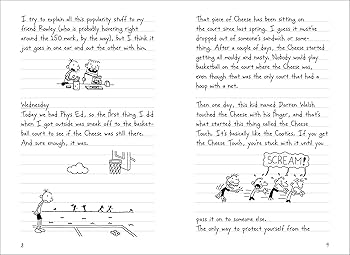 I try to explain all this popularity stuff to my
friend Rowley (who is probably hovering right
around the 150 mark, by the way), but I think it
just goes in one ear and out the other with him.
Wednesday
Today we had Phys Ed, so the first thing I did
when I got outside was sneak off to the basket-
ball court to see if the Cheese was still there.
And sure enough, it was.
2
That piece of Cheese has been sitting on
the court since last spring. I guess it must've
dropped out of someone's sandwich or some-
thing. After a couple of days, the Cheese started
getting all moldy and nasty. Nobody would play
basketball on the court where the Cheese was,
even though that was the only court that had a
hoop with a net.
Then one day, this kid named Darren Walsh
touched the Cheese with his finger, and that's
what started this thing called the Cheese
Touch. It's basically like the Cooties. If you get
the Cheese Touch, you're stuck with it until you
SCREAM!
pass it on to someone else.
The only way to protect yourself from the